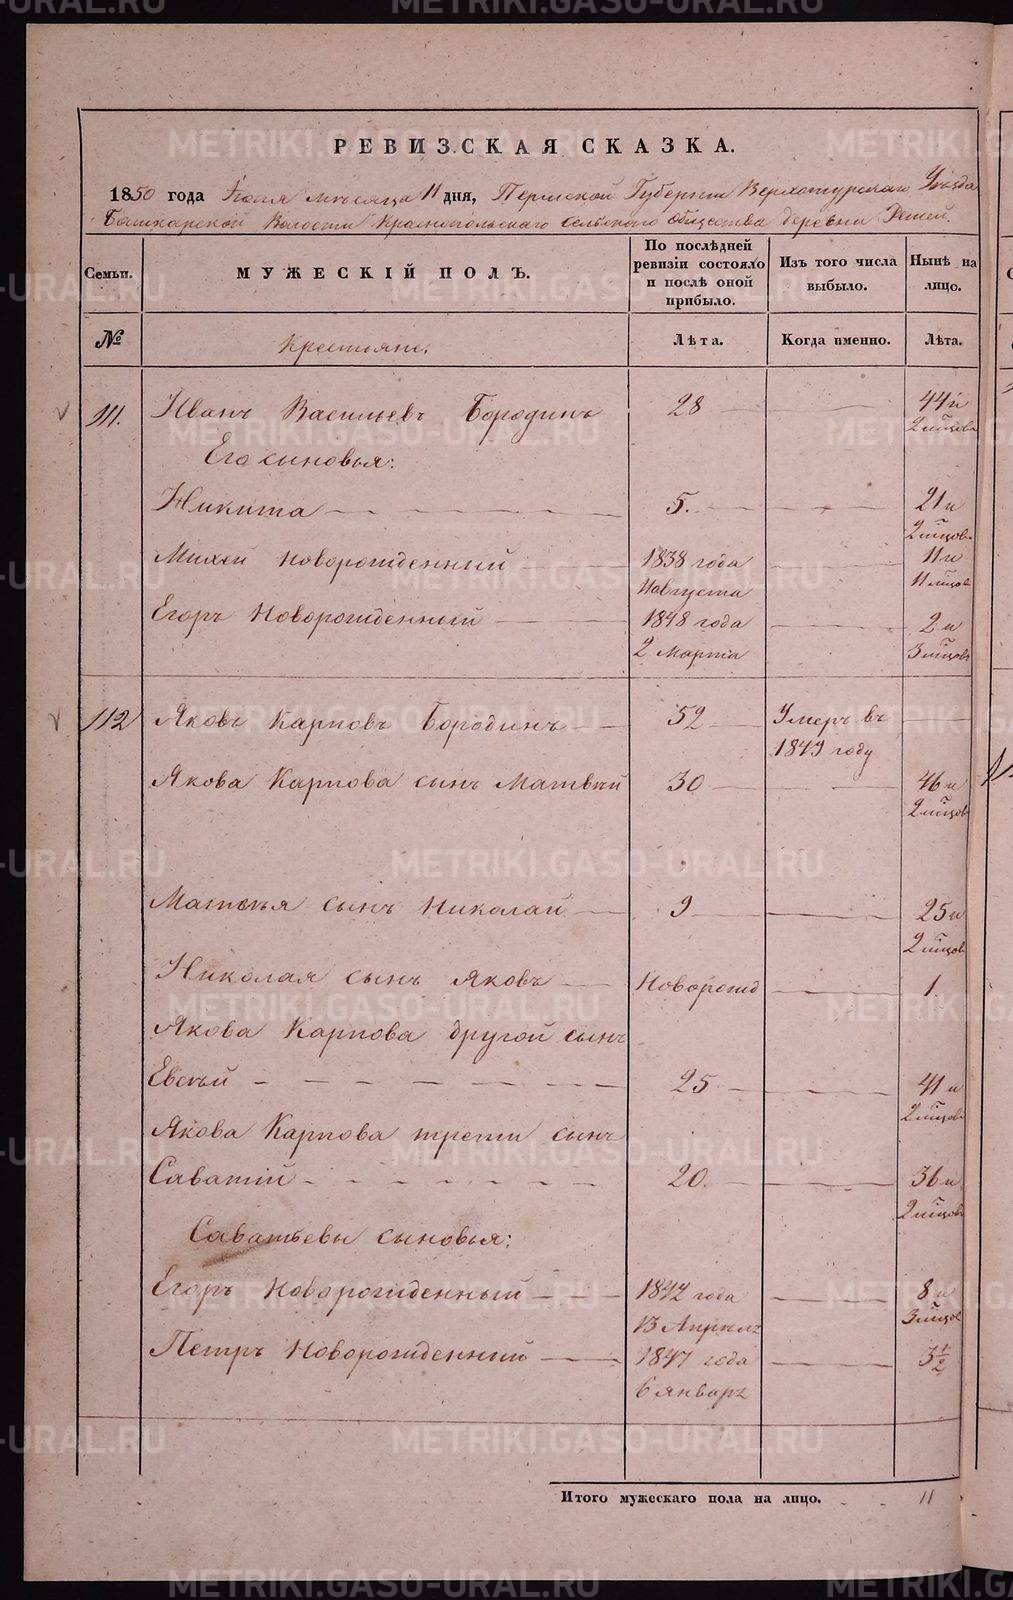 РЕВИЗСКАЯ СКАЗКА.
1850 года Іюля мѣсяца 11 дня, Пермской Губерніи Верхотурскаго Уѣзда
Башкарской Волости Краснопольскаго Сельскаго Общества деревни
Семьи. МУЖЕСКІЙ ПОЛЪ. По послѣдней ревизіи состояло и послѣ оной прибыло. Изъ того числа выбыло. Нынѣ на лицо.
№ Крестьяне. Лѣта. Когда именно. Лѣта.
111. Иванъ Васильевъ Бородинъ 28 44 и 2 мѣсцовъ
Его сыновья:
Никита 5. 21 и 2 мѣсцовъ
Михей новорожденный 1838 года 11 августа 11 и 11 мѣсцовъ
Егоръ новорожденный 1848 года 2 марта 2 и 3 мѣсцовъ
112 Яковъ Карповъ Бородинъ 52 Умеръ въ 1849 году
Якова Карпова сынъ Матвѣй 30 46 и 2 мѣсцовъ
Матвѣя сынъ Николай 9 25 и 2 мѣсцовъ
Николая сынъ Яковъ Новорожд 1
Якова Карпова другой сынъ
Евсѣй 25 41 и 2 мѣсцовъ
Якова Карпова трети сынъ
Саватій 20. 36 и 2 мѣсцовъ
Саватьевы сыновья:
Егоръ Новорожденный 1842 года 13 Апрѣля 8 и 3 мѣсцов
Петръ Новорожденный 1847 года 6 январь 3 1/2
Итого мужескаго пола на лицо. 11
METRIKI.GASO-URAL.RU